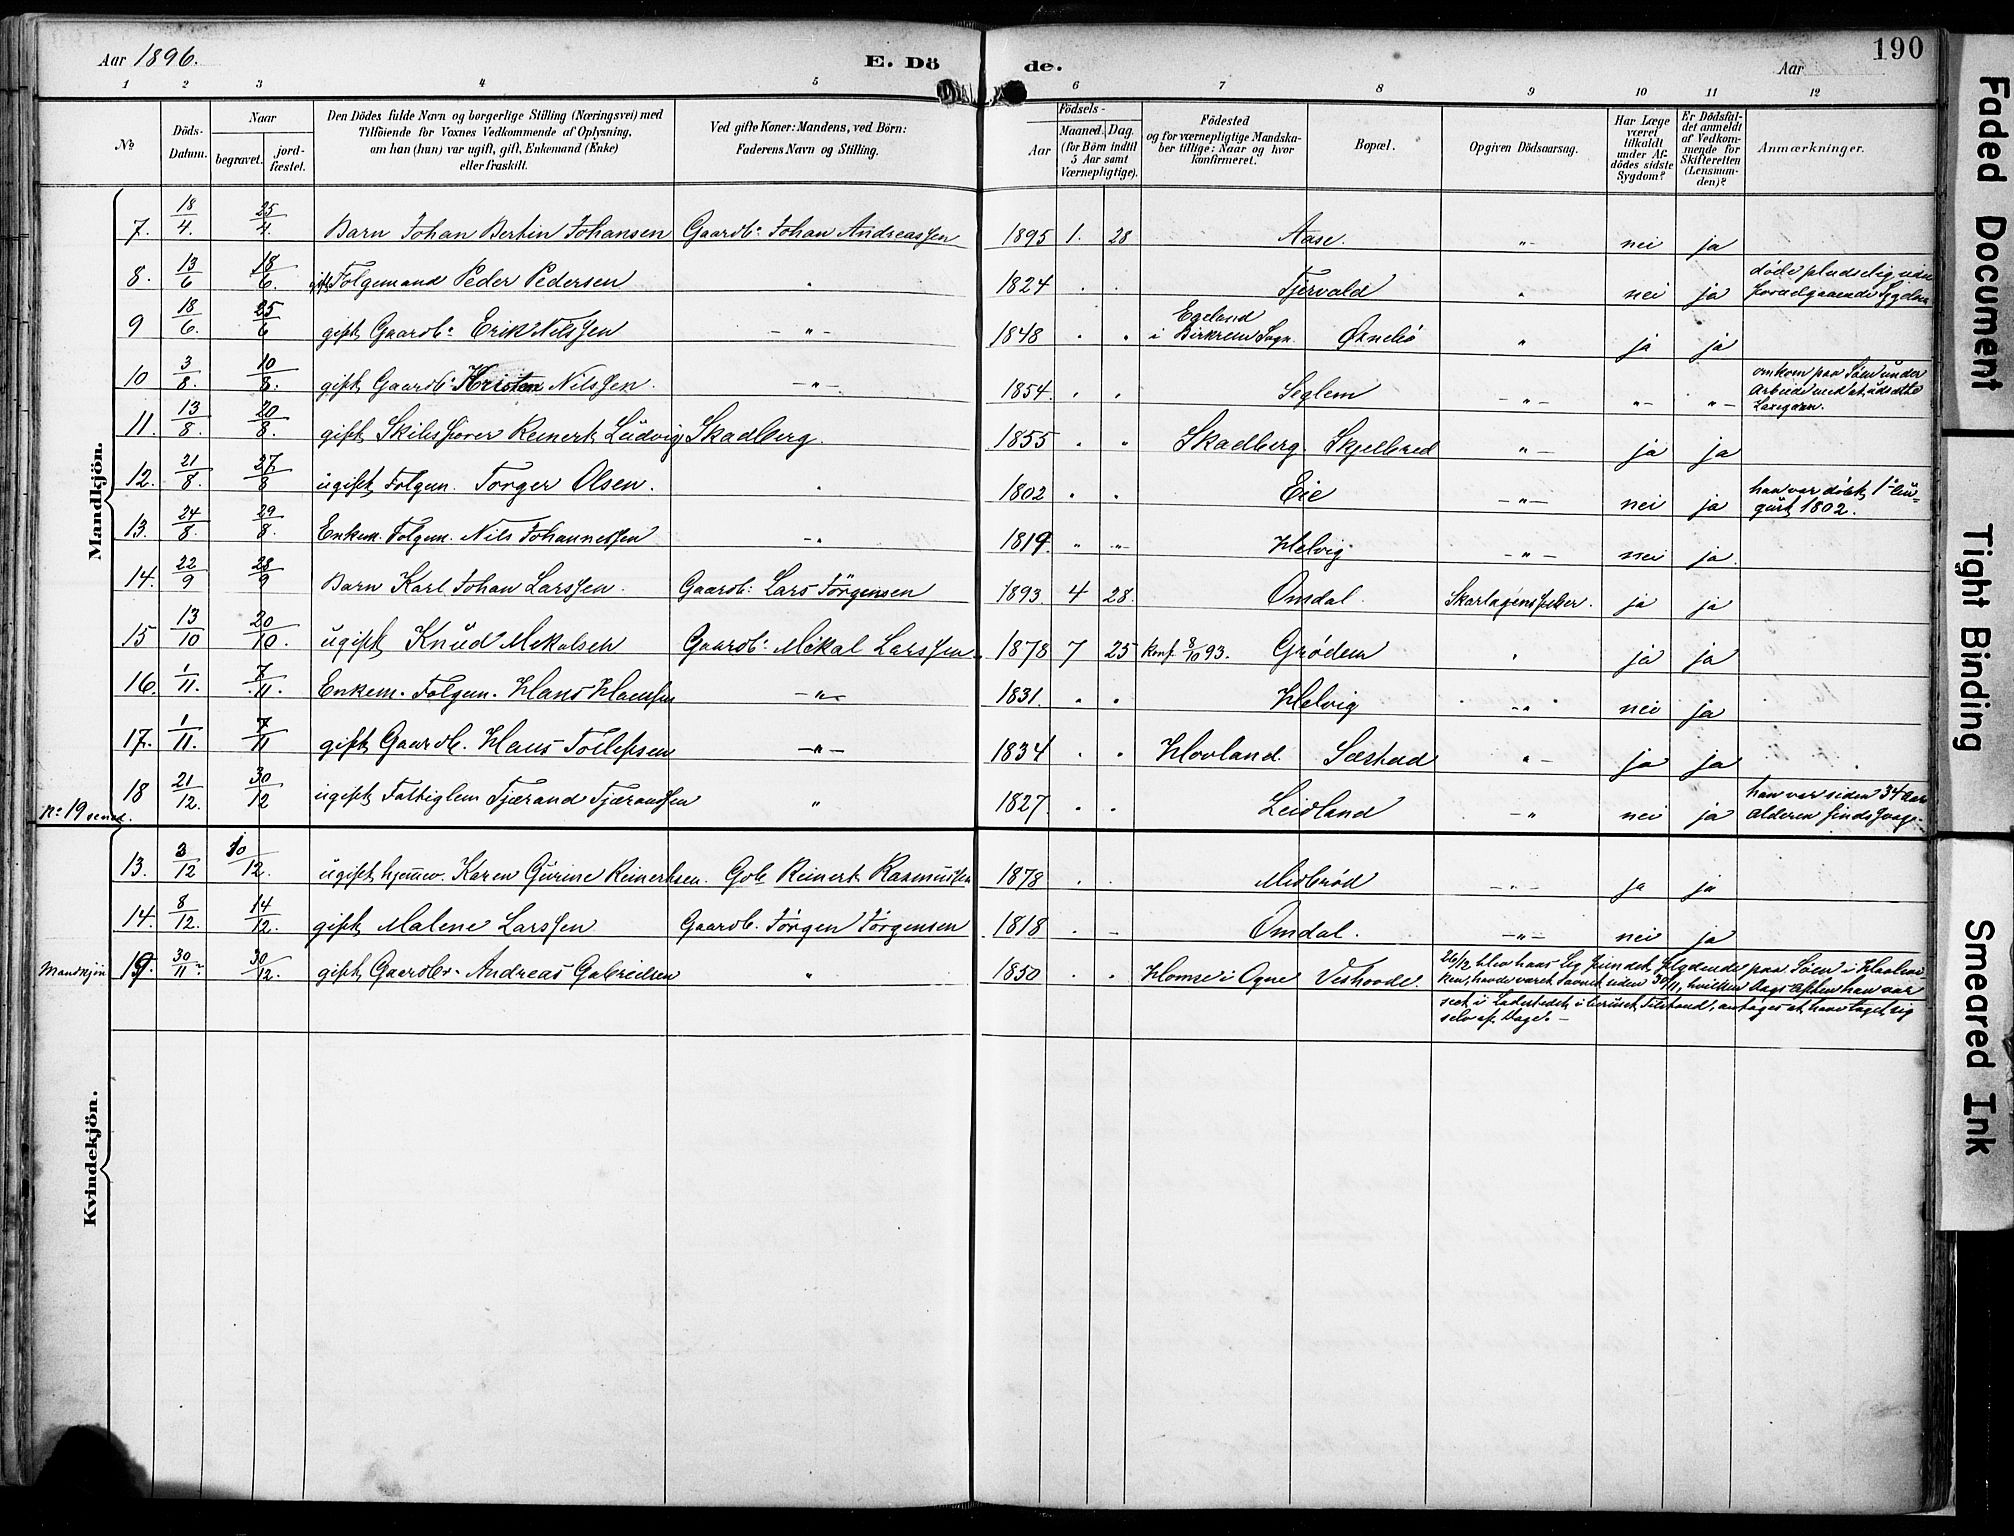 Aar 1896.
E. Dö
de.
Aar
190
1 2 3 4 5 6 7 8 9 10 11 12
№
Döds-
Datum.
Naar
begravet.
jord-
fæstet.
Den Dödes fulde Navn og borgerlige Stilling (Næringsvei) med
Tilföiende for Voxnes Vedkommende af Oplysning,
om han (hun) var ugift, gift, Enkemand (Enke)
eller fraskilt.
Ved gifte Koner: Mandens, ved Börn:
Faderens Navn og Stilling.
Födsels-
Aar
Maaned. Dag.
(for Börn indtil
5 Aar samt
Værnepligtige).
Födested
og for værnepligtige Mandska-
ber tillige: Naar og hvor
konfirmeret.
Bopæl.
Opgiven Dödsaarsag.
Har Læge
været
tilkaldt
under Af-
dödes sidste
Sygdom?
Er Dödsfal-
det anmeldt
af Vedkom-
mende for
Skifteretten
(Lensman-
den)?
Anmærkninger.
Mandkjön.
7. 18/4. 25/4. Barn Johan Bertin Johansen Gaardb: Johan Andreassen 1895 1. 28 Aase. " nei ja
8. 13/6 18/6. gift Folgemand Peder Pedersen " 1824 Tjervald " nei ja døde pludselig uden
forudgaaende Sygdom
9 18/6. 25/6 gift Gaardb: Erik Nilssen - " - 1848 Egeland
i Birkrem Sogn. Ørnebø " ja ja
10 3/8. 10/8. gift Gaardb: Kristen Nilssen. - " - 1854. Seglem - " - " - " - omkom paa Søen under
Arbeide med at udsætte
Laxegarn.
11. 13/8. 20/8. gift Skibsfører Reinert Ludvig Skadberg. 1855 Skadberg. Skjelbred " - ja ja
12. 21/8. 27/8 ugift Folgem. Torger Olsen. " 1802 Eie - " - nei ja han var døbt 1ste au-
gust 1802.
13. 24/8. 29/8. Enkem. Folgem. Nils Johannessen - " 1819. Helvig - " - nei ja
14. 22/9 28/9 Barn Karl Johan Larssen. Gaardb: Lars Jörgensen 1893. 4 28. Omdal. Skarlagensfeber. ja ja
15 13/10 20/10. ugift Knud Mikalsen Gaardb: Mikal Larssen 1878 7 25 Konf. 8/10 93. Grødem " ja ja
16. 1/11. 7/11. Enkem. Folgem. Hans Hanssen - " - 1831. Helvig - " nei ja
17. 1/11. 7/11 gift Gaardb. Hans Tollefsen - " - 1834 Hovland. Sæstad " - ja ja
18 21/12. 30/12 ugift Fattiglem Tjærand Tjærandsen " 1827. Leidland - " nei ja han var siden 34 aars
alderen sindssvag.
No 19 sened.
Kvindekjön.
13. 3/12 10/12. ugift hjemmev. Karen Gurine Reinertsen. Gb. Reinert Rasmussen 1878 Midbrød - " - ja ja
14. 8/12. 14/12. gift Malene Larssen Gaardb. Jörgen Jörgensen 1818 Omdal. - " - nei ja
Mandkjøn 19. 30/11? 30/12. gift Gaardbr. Andreas Gabrielsen " 1850 Homse i Ogne Veshovde. 26/12 blev hans Lig fundet flydende paa Søen i
havde været savnet siden 30/11, hvilken Dags Aften han var
seet i Ladestedet i beruset Tilstand, antages at have taget sig
selv af Dage. -
Faded Document
Tight Binding
Smeared Ink